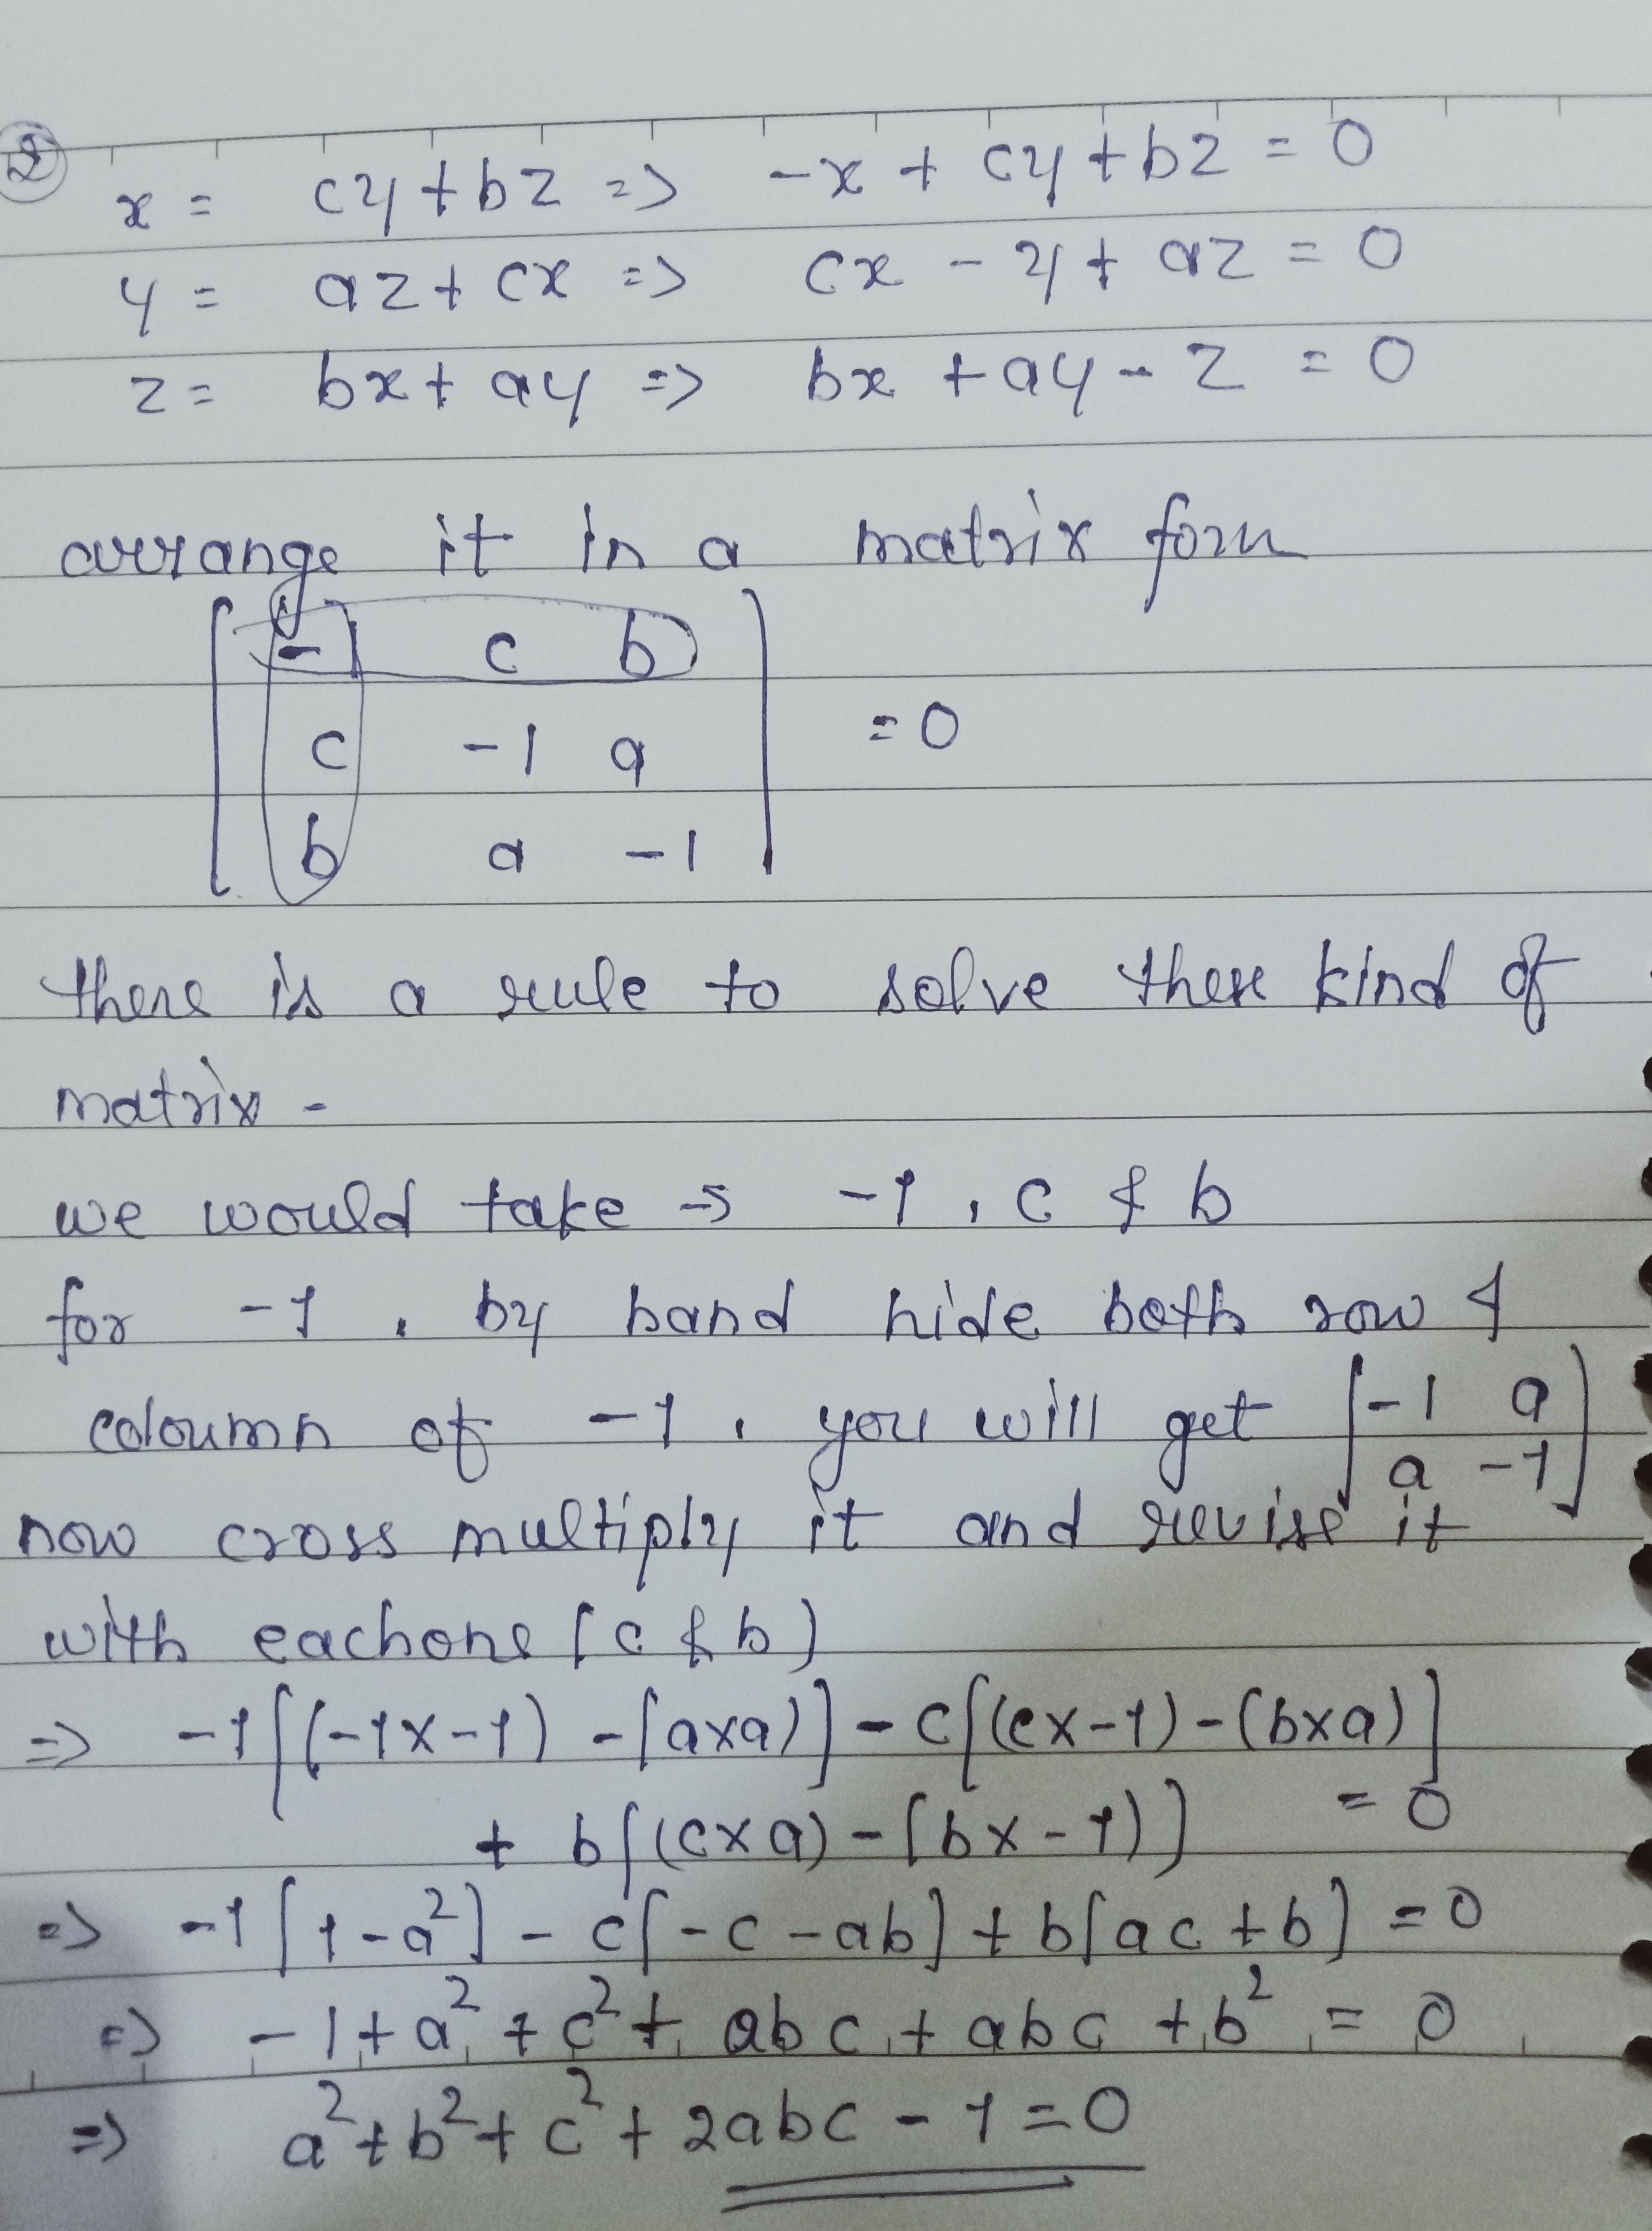 ②
x = cy + bz => -x + cy + bz = 0
y = az + cx => cx - y + az = 0
z = bx + ay => bx + ay - z = 0
arrange it in a matrix form
[ -1 c b ]
[ c -1 a ] = 0
[ b a -1 ]
there is a rule to solve these kind of
matrix -
we would take → -1, c & b
for -1, by hand hide both row &
coloumn of -1, you will get [ -1 a
a -1 ]
now cross multiply it and revise it
with eachone (c & b)
=> -1[(-1x-1) - (axa)] - c[(cx-1) - (bxa)]
+ b[(cxa) - (bx-1)] = 0
=> -1[1-a²] - c[-c-ab] + b[ac+b] = 0
=> -1 + a² + c² + abc + abc + b² = 0
=> a² + b² + c² + 2abc - 1 = 0